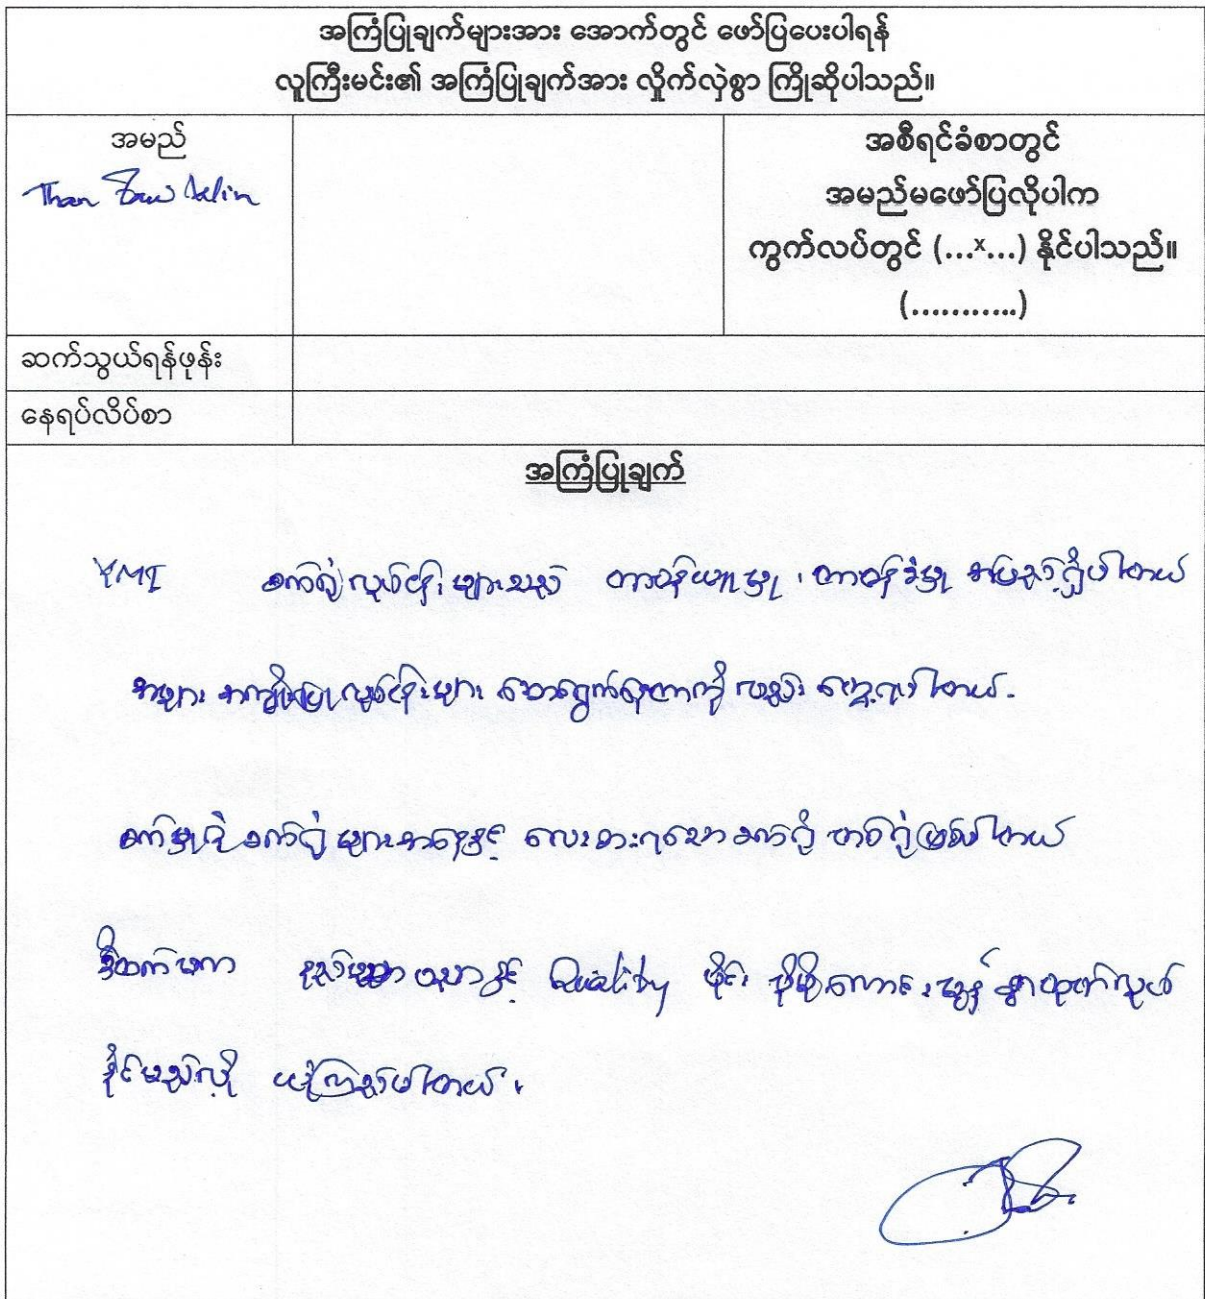 အကြံပြုချက်များအား အောက်တွင် ဖော်ပြပေးပါရန်
လူကြီးမင်း၏ အကြံပြုချက်အား လှိုက်လှဲစွာ ကြိုဆိုပါသည်။
အမည်
Than Zaw
အစီရင်ခံစာတွင်
အမည်မဖော်ပြလိုပါက
ကွက်လပ်တွင် (...x...) နိုင်ပါသည်။
(...........)
ဆက်သွယ်ရန်ဖုန်း
နေရပ်လိပ်စာ
အကြံပြုချက်
စက်ရုံ လုပ်ငန်းများသည် တာဝန်ယူမှု ၊ တာဝန်ခံမှု အပြည့်ရှိပါတယ်
အများ အကျိုးပြု လုပ်ငန်းများ ဆောင်ရွက်နေတာကို လည်း တွေ့ရပါတယ်.
စက်မှုဇုန် စက်ရုံ များအနေနှင့် လေးစားရသော စက်ရုံ တစ်ရုံဖြစ်ပါတယ်
ဒီထက်မက နည်းပညာနှင့် Quality ပိုင်း ပိုမိုကောင်းမွန် စွာထုတ်လုပ်
နိုင်မည်လို့ ယုံကြည်ပါတယ်.